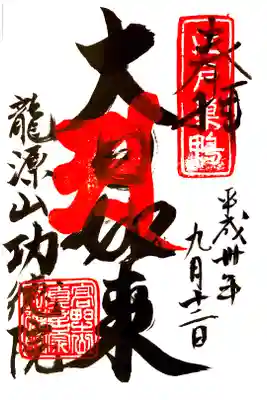 奉拝
江戸巣鴨
平成卅年
九月十二日
大日如来
龍源山功徳院